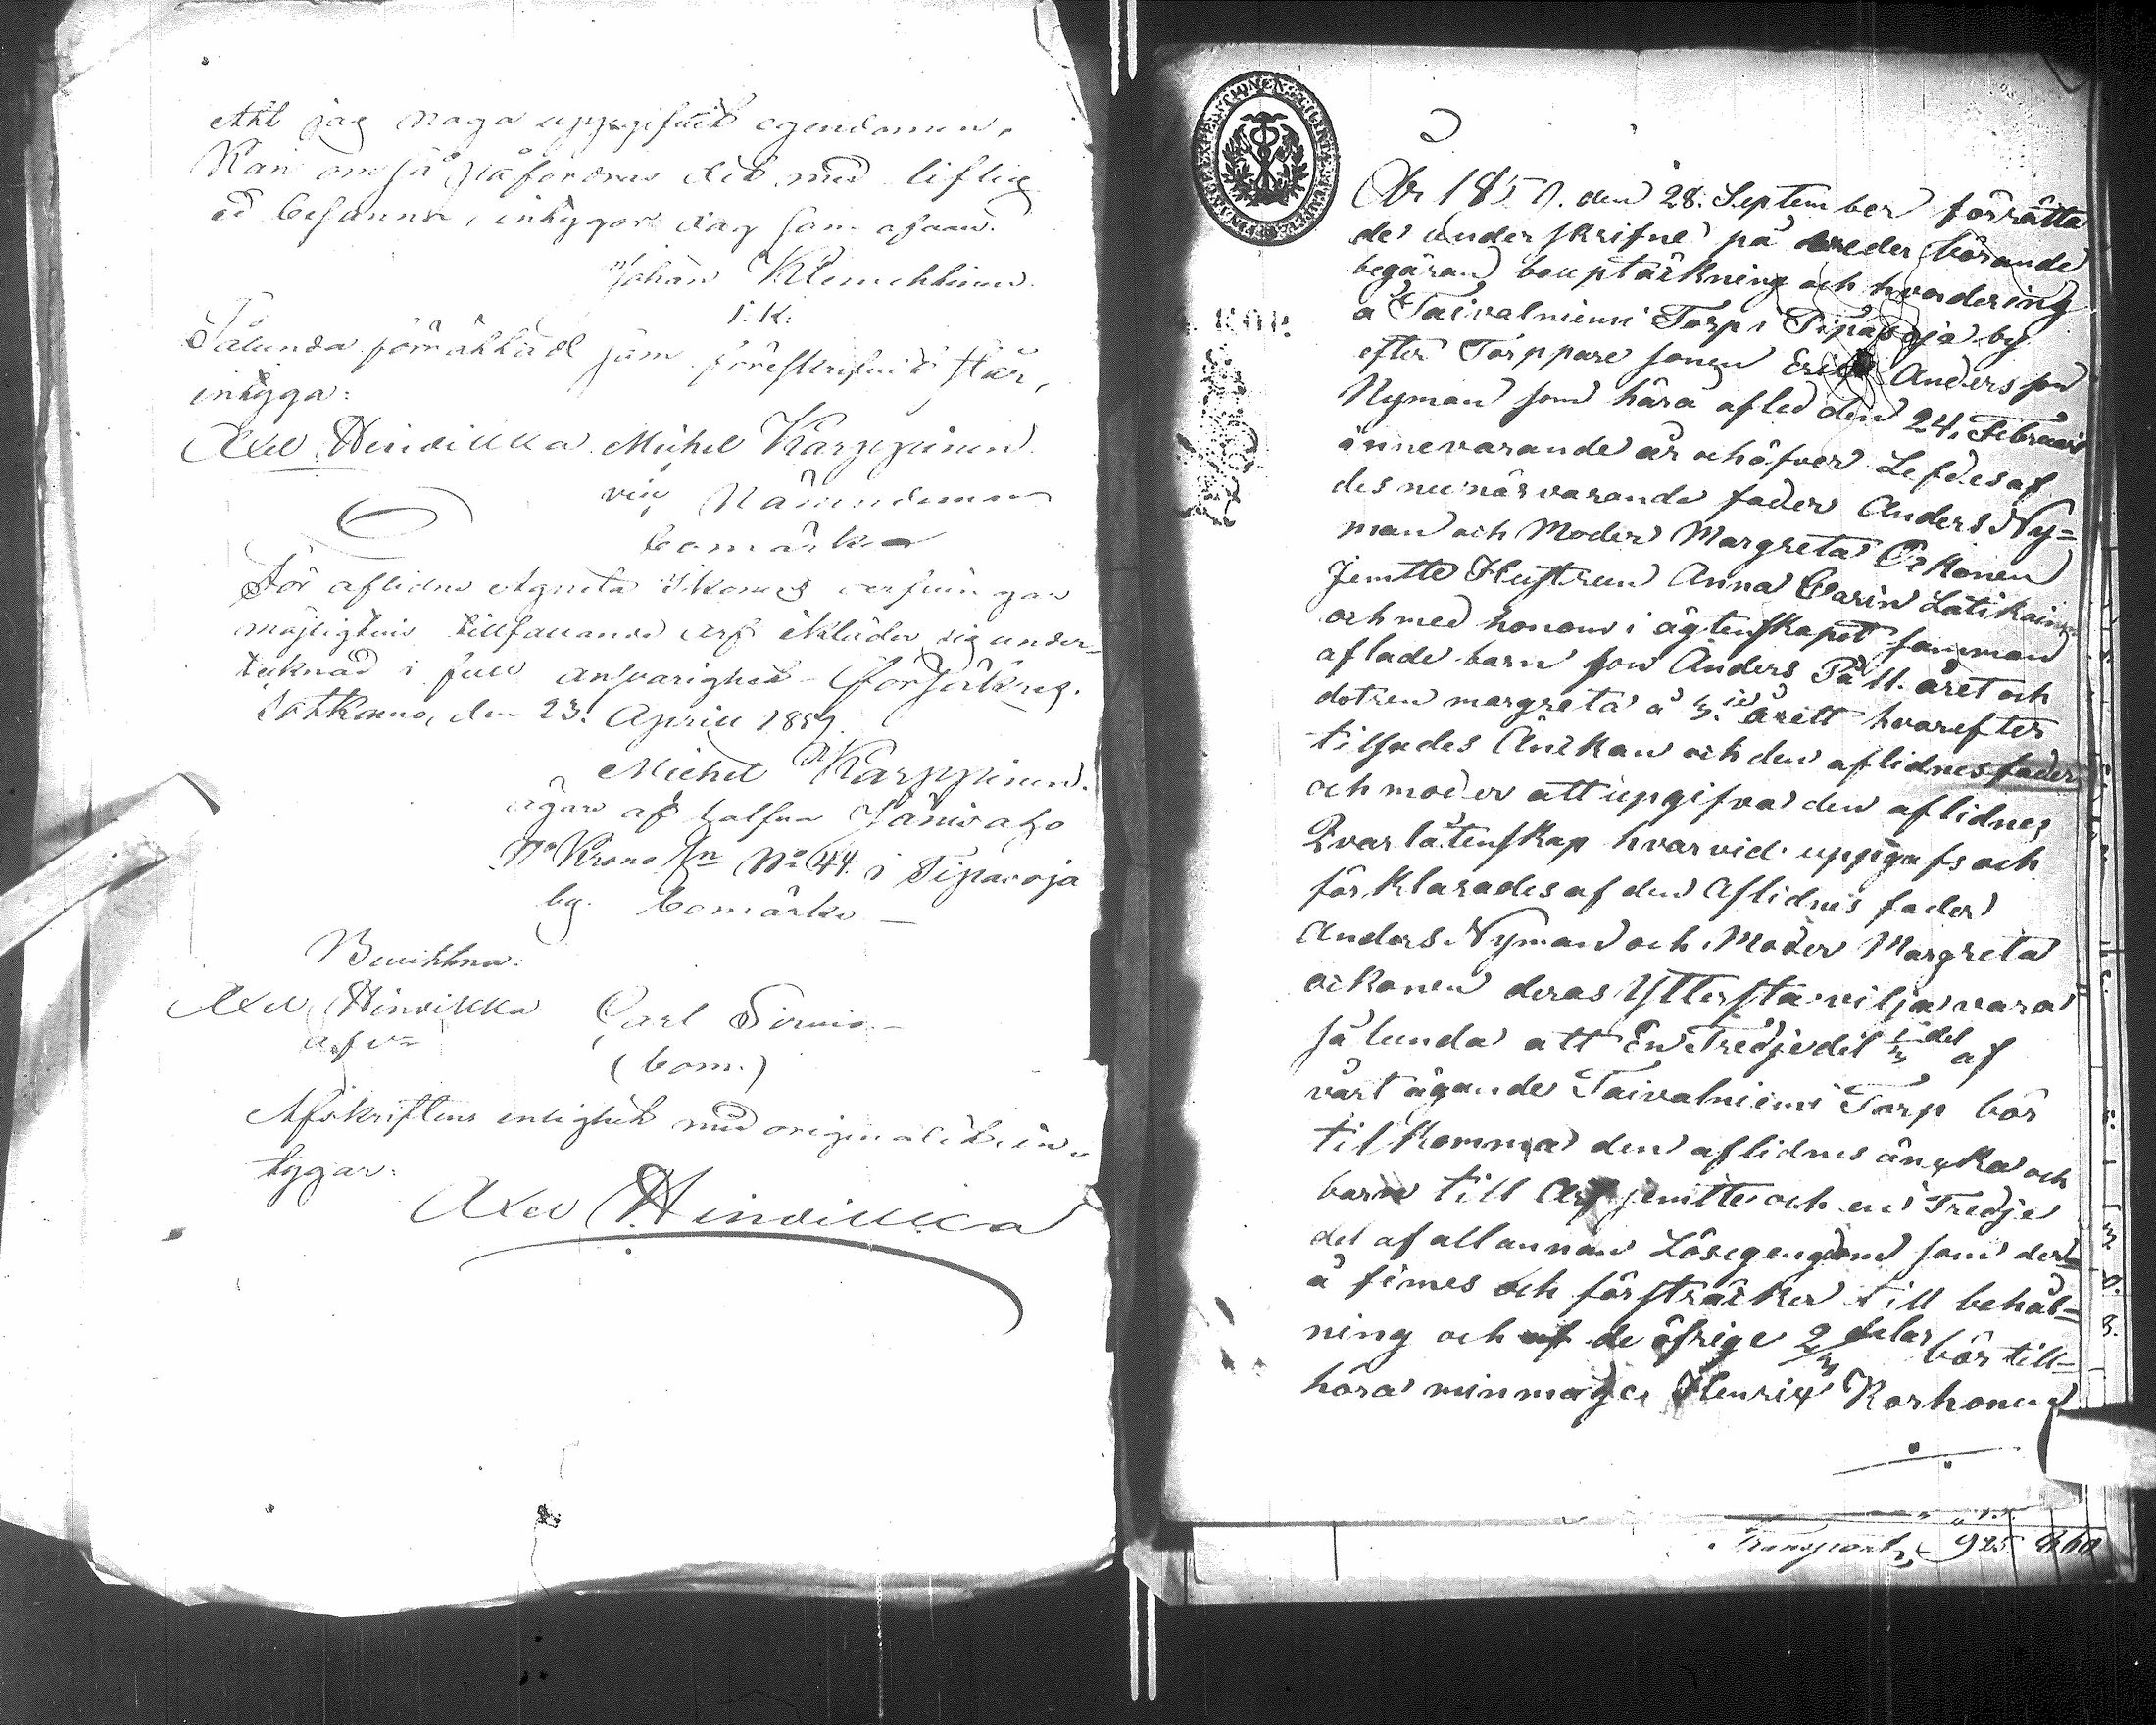 Att jag noga uppgifvit egendomen,
Kan om så påfordras det med liflig
ed besanna, intygar dag som ofvan.
Johan Klemettinen
I. K.
Sålunda förrättadt som föreskrifvit står,
intyga:
Axel Hendikka Michel Karppinen
Nämndeman
bomärke
För aflidne Agneta
möjligtvis tillfallande arf ikläder sig under-
tecknad i full ansvarighet försäkras.
Sotkamo, den 23. April 1859.
Michel Karppinen.
ägare af halfva Jänisaho
Krono No 44. i Tipasoja
by. bomärke —
Bevittna:
Axel Hendikka Carl Sirvio —
(bom.)
Afskriftens enlighet med originalet, in-
tygar:
Axel Hendikka
År 1859. den 28. September förrätta
de underskrifne på vederbörande
begäran bouptäkning och hvardering
å Taivalniemi Torp i Tipasoja by
efter Torppare sonen Eric Andersson
Nyman som hära afled den 24. Februari
innevarande år och öfver Lefdes af
des nu närvarande fader Anders Ny=
man och Moder Margreta Ockonen
Jemtte Hustrun Anna Carin Latikainen
och med honom i ägtenskapet samman
aflade barn son Anders På 11. året och
dotren margreta å 3. ie årett hvarefter
tilsades Änkan och den aflidnes fader
och moder att upgifva den aflidnes
Qvarlåtenskap hvarvid uppgafs och
förklarades af den Aflidnes fader
Anders Nyman och Moder Margreta
ockonen deras Yttersta vilja vara
så lunda att En Tredjedel 1/3 del af
vårt ägande Taivalniemi Torp bör
tilkomma den aflidnes änka och
barn till Arf jemtte och en Tredje
del af all annan Lösegendom som der=
å finnes och försträcker till behål=
ning och de öfrige 2/3 delar bör till=
höra min måge Henrix Korhonen
KOP.
Transport 925